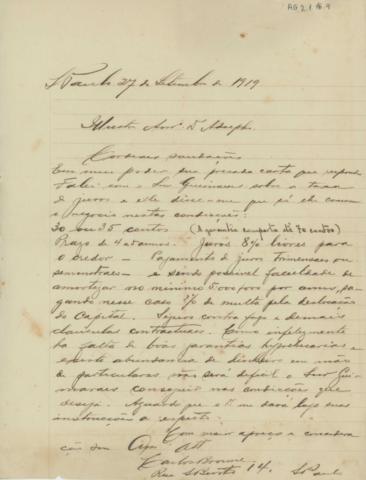 AG 2.1.16.9
S Paulo 27 de Setembro de 1919
Illustre Amº Dr Adolph.
Cordeaes saudações
Em meu poder sua presada carta que respondo
Fallei com o Snr Guimarães sobre a taxa
de juros e elle disse-me que só elle
o negocio nestas condicções:
30 ou 35 contos (A garantia comporta até 70 contos)
Prazo de 4 annos. Juros 8% livres para
o credor — Pagamento de juros trimensaes ou
semestraes — e sendo possivel faculdade de
amortizar no minimo 5:000$000 por anno, pa-
gando nesse caso 2% de multa pela
do Capital. Seguro contra fogo e demais
clausulas contractuaes. Como infelizmente
ha falta de boas garantias hypothecarias e
existe abundancia de dinheiro em mãos
de particulares não será dificil o Snr Gui-
marães conseguir nas condicções que
deseja. Aguardo que o Dr me dará suas
instrucções a respeito.
Com maior apreço e considera
ção sou Amº Att
Carlos
Rua S Bento 14. S Paulo